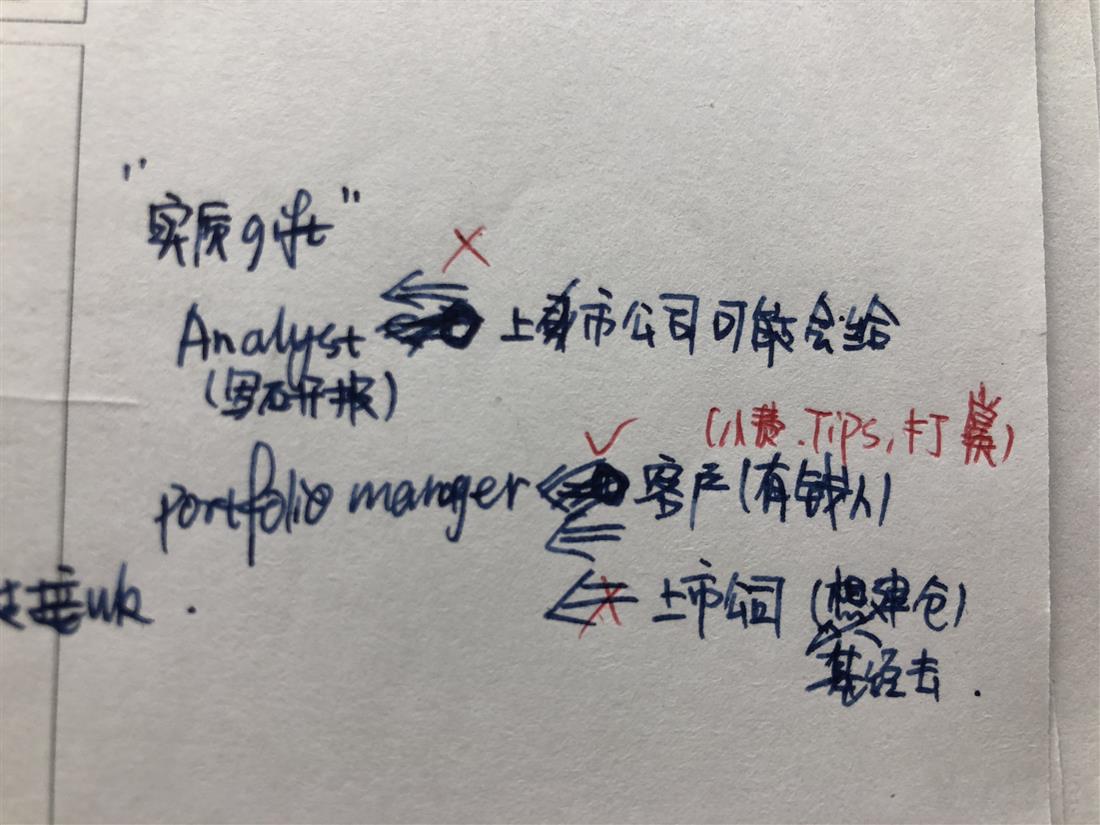 "实质gift"
Analyst ← 上市公司可能会给
(写研报)
(小费.Tips,打赏)
portfolio manager ← 客户(有钱人)
← 上市公司(想建仓)
接uk.
基经去.